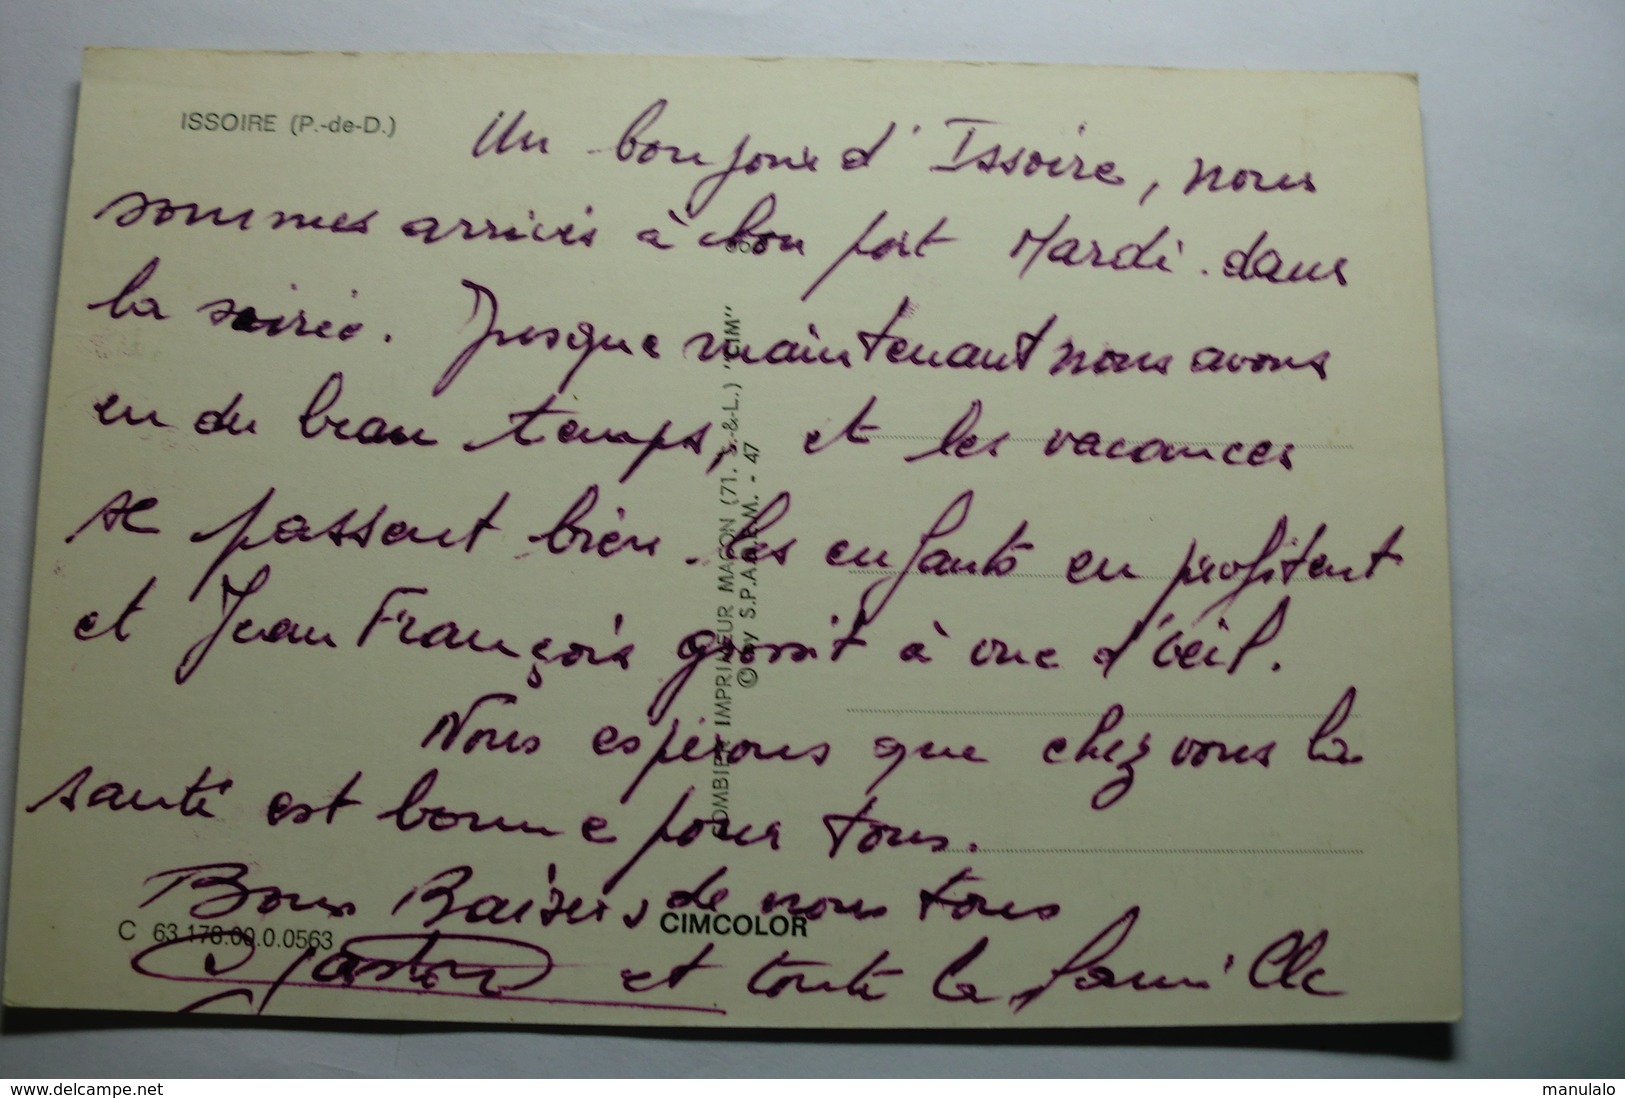 ISSOIRE (P.-de-D.)
Un bonjour d'Issoire, nous
sommes arrivés à bon port Mardi dans
la soirée. Jusque maintenant nous avons
eu du beau temps, et les vacances
se passent bien. les enfants en profitent
et Jean François grossit à vue d'œil.
Nous espérons que chez vous la
santé est bonne pour tous.
Bons Baisers de nous tous
Gaston et toute la famille
C 63.178.00.0.0563
CIMCOLOR
COMBIER IMPRIMEUR MACON (71. S.-&-L.) "CIM"
© by S.P.A.D.E.M. - 47
www.delcampe.net
manulalo